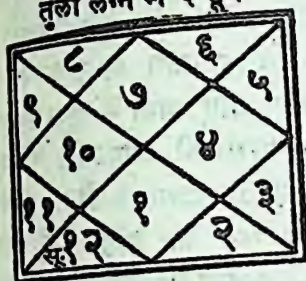 तुला लग्न
८
६
९
७
५
१०
४
११
१
३
सू.१२
२